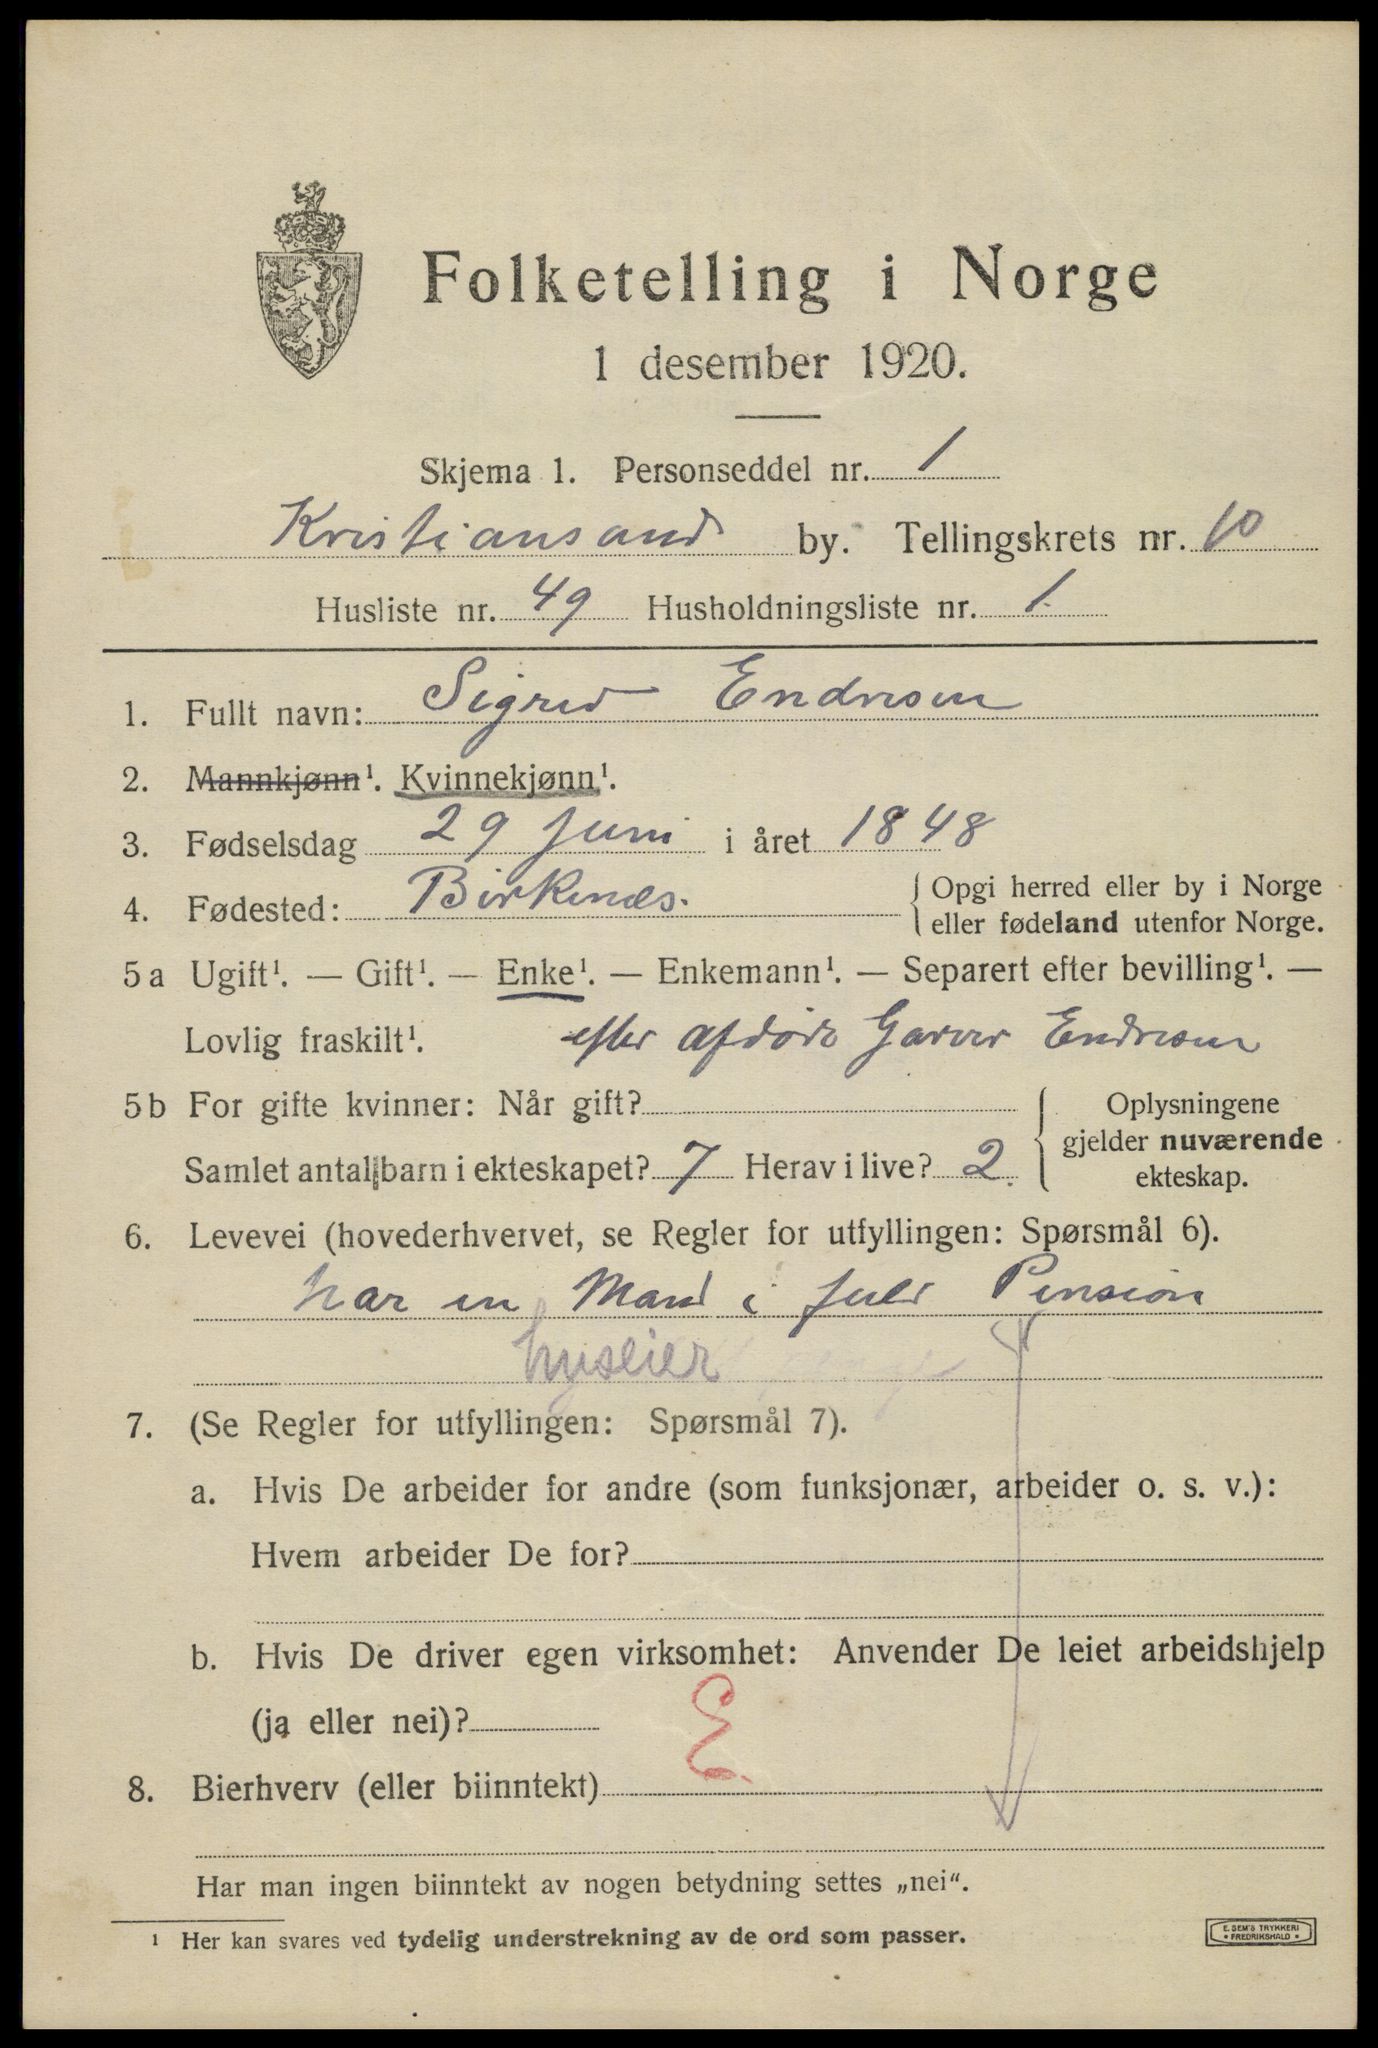 Folketelling i Norge
1 desember 1920.
Skjema 1. Personseddel nr. 1
Kristiansand by. Tellingskrets nr. 10
Husliste nr. 49 Husholdningsliste nr. 1.
1. Fullt navn: Sigrid Endresen
2. Mannkjønn¹. Kvinnekjønn¹.
3. Fødselsdag 29 juni i året 1848
4. Fødested: Birkenæs. { Opgi herred eller by i Norge
eller fødeland utenfor Norge.
5a Ugift¹. — Gift¹. — Enke¹. — Enkemann¹. — Separert efter bevilling¹. —
Lovlig fraskilt¹. efter afdøde Garver Endresen
5b For gifte kvinner: Når gift? { Oplysningene
gjelder nuværende
Samlet antal barn i ekteskapet? 7 Herav i live? 2.
ekteskap.
6. Levevei (hovederhvervet, se Regler for utfyllingen: Spørsmål 6).
har en Mand i fuld Pension
huseier
7. (Se Regler for utfyllingen: Spørsmål 7).
a. Hvis De arbeider for andre (som funksjonær, arbeider o. s. v.):
Hvem arbeider De for?
b. Hvis De driver egen virksomhet: Anvender De leiet arbeidshjelp
(ja eller nei)?
E
8. Bierhverv (eller biinntekt)
Har man ingen biinntekt av nogen betydning settes „nei“.
¹ Her kan svares ved tydelig understrekning av de ord som passer.
E. SEM'S TRYKKERI
• FREDRIKSHALD •